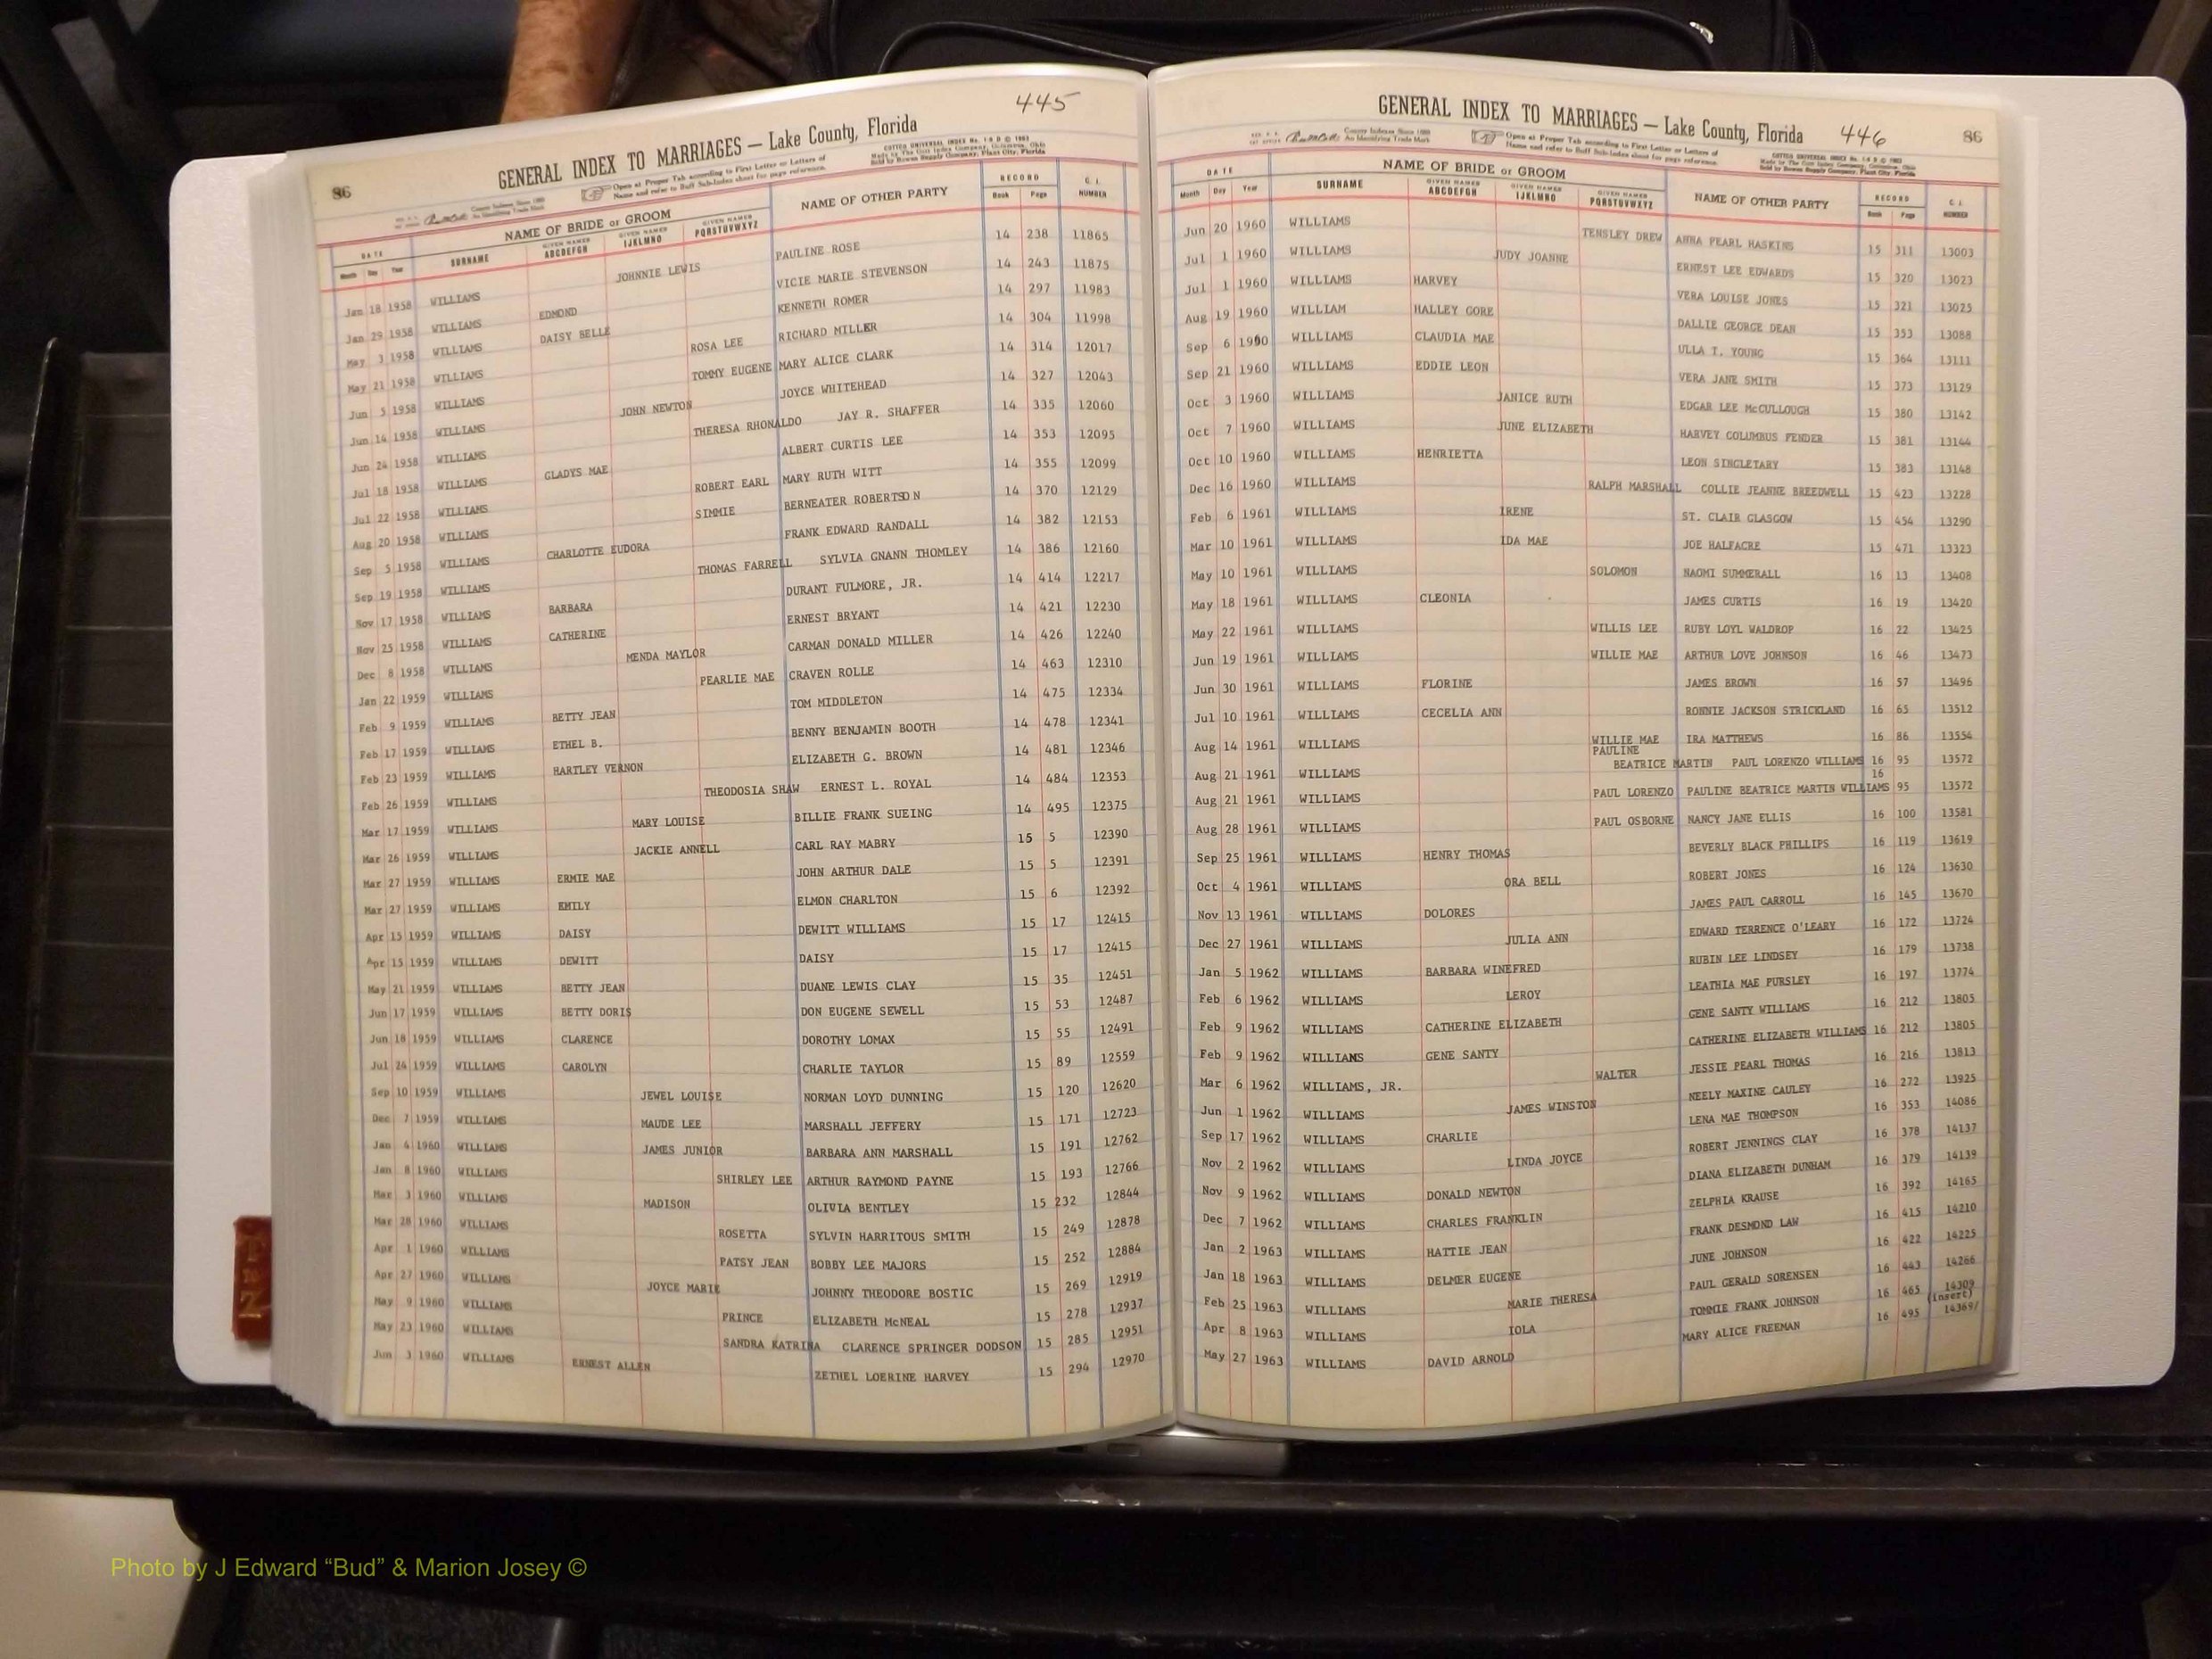 445
86
GENERAL INDEX TO MARRIAGES — Lake County, Florida
Open at Proper Tab according to First Letter or Letters of
Name and refer to Buff Sub-Index sheet for page reference.
COTTCO UNIVERSAL INDEX No. 1-S D © 1963
Made by The Cott Index Company, Columbus, Ohio
Sold by Rowen Supply Company, Plant City, Florida
DATE NAME OF BRIDE or GROOM NAME OF OTHER PARTY RECORD C. I. NUMBER
Month Day Year SURNAME GIVEN NAMES ABCDEFGH GIVEN NAMES IJKLMNO GIVEN NAMES PQRSTUVWXYZ Book Page
Jan 18 1958 WILLIAMS JOHNNIE LEWIS PAULINE ROSE 14 238 11865
Jan 29 1958 WILLIAMS EDMOND VICIE MARIE STEVENSON 14 243 11875
May 3 1958 WILLIAMS DAISY BELLE KENNETH ROMER 14 297 11983
May 21 1958 WILLIAMS ROSA LEE RICHARD MILLER 14 304 11998
Jun 5 1958 WILLIAMS TOMMY EUGENE MARY ALICE CLARK 14 314 12017
Jun 14 1958 WILLIAMS JOHN NEWTON JOYCE WHITEHEAD 14 327 12043
Jun 24 1958 WILLIAMS THERESA RHONALDO JAY R. SHAFFER 14 335 12060
Jul 18 1958 WILLIAMS GLADYS MAE ALBERT CURTIS LEE 14 353 12095
Jul 22 1958 WILLIAMS ROBERT EARL MARY RUTH WITT 14 355 12099
Aug 20 1958 WILLIAMS SIMMIE BERNEATER ROBERTSON 14 370 12129
Sep 5 1958 WILLIAMS CHARLOTTE EUDORA FRANK EDWARD RANDALL 14 382 12153
Sep 19 1958 WILLIAMS THOMAS FARRELL SYLVIA GNANN THOMLEY 14 386 12160
Nov 17 1958 WILLIAMS BARBARA DURANT FULMORE, JR. 14 414 12217
Nov 25 1958 WILLIAMS CATHERINE ERNEST BRYANT 14 421 12230
Dec 8 1958 WILLIAMS MENDA MAYLOR CARMAN DONALD MILLER 14 426 12240
Jan 22 1959 WILLIAMS PEARLIE MAE CRAVEN ROLLE 14 463 12310
Feb 9 1959 WILLIAMS BETTY JEAN TOM MIDDLETON 14 475 12334
Feb 17 1959 WILLIAMS ETHEL B. BENNY BENJAMIN BOOTH 14 478 12341
Feb 23 1959 WILLIAMS HARTLEY VERNON ELIZABETH G. BROWN 14 481 12346
Feb 26 1959 WILLIAMS THEODOSIA SHAW ERNEST L. ROYAL 14 484 12353
Mar 17 1959 WILLIAMS MARY LOUISE BILLIE FRANK SUEING 14 495 12375
Mar 26 1959 WILLIAMS JACKIE ANNELL CARL RAY MABRY 15 5 12390
Mar 27 1959 WILLIAMS ERMIE MAE JOHN ARTHUR DALE 15 5 12391
Mar 27 1959 WILLIAMS EMILY ELMON CHARLTON 15 6 12392
Apr 15 1959 WILLIAMS DAISY DEWITT WILLIAMS 15 17 12415
Apr 15 1959 WILLIAMS DEWITT DAISY 15 17 12415
May 21 1959 WILLIAMS BETTY JEAN DUANE LEWIS CLAY 15 35 12451
Jun 17 1959 WILLIAMS BETTY DORIS DON EUGENE SEWELL 15 53 12487
Jun 18 1959 WILLIAMS CLARENCE DOROTHY LOMAX 15 55 12491
Jul 24 1959 WILLIAMS CAROLYN CHARLIE TAYLOR 15 89 12559
Sep 10 1959 WILLIAMS JEWEL LOUISE NORMAN LOYD DUNNING 15 120 12620
Dec 7 1959 WILLIAMS MAUDE LEE MARSHALL JEFFERY 15 171 12723
Jan 4 1960 WILLIAMS JAMES JUNIOR BARBARA ANN MARSHALL 15 191 12762
Jan 8 1960 WILLIAMS SHIRLEY LEE ARTHUR RAYMOND PAYNE 15 193 12766
Mar 3 1960 WILLIAMS MADISON OLIVIA BENTLEY 15 232 12844
Mar 28 1960 WILLIAMS ROSETTA SYLVIN HARRITOUS SMITH 15 249 12878
Apr 1 1960 WILLIAMS PATSY JEAN BOBBY LEE MAJORS 15 252 12884
Apr 27 1960 WILLIAMS JOYCE MARIE JOHNNY THEODORE BOSTIC 15 269 12919
May 9 1960 WILLIAMS PRINCE ELIZABETH McNEAL 15 278 12937
May 23 1960 WILLIAMS SANDRA KATRINA CLARENCE SPRINGER DODSON 15 285 12951
Jun 3 1960 WILLIAMS ERNEST ALLEN ZETHEL LOERINE HARVEY 15 294 12970
GENERAL INDEX TO MARRIAGES — Lake County, Florida 446 86
Open at Proper Tab according to First Letter or Letters of
Name and refer to Buff Sub-Index sheet for page reference.
COTTCO UNIVERSAL INDEX No. 1-S D © 1963
Made by The Cott Index Company, Columbus, Ohio
Sold by Rowen Supply Company, Plant City, Florida
DATE NAME OF BRIDE or GROOM NAME OF OTHER PARTY RECORD C. I. NUMBER
Month Day Year SURNAME GIVEN NAMES ABCDEFGH GIVEN NAMES IJKLMNO GIVEN NAMES PQRSTUVWXYZ Book Page
Jun 20 1960 WILLIAMS TENSLEY DREW ANNA PEARL HASKINS 15 311 13003
Jul 1 1960 WILLIAMS JUDY JOANNE ERNEST LEE EDWARDS 15 320 13023
Jul 1 1960 WILLIAMS HARVEY VERA LOUISE JONES 15 321 13025
Aug 19 1960 WILLIAM HALLEY GORE DALLIE GEORGE DEAN 15 353 13088
Sep 6 1960 WILLIAMS CLAUDIA MAE ULLA T. YOUNG 15 364 13111
Sep 21 1960 WILLIAMS EDDIE LEON VERA JANE SMITH 15 373 13129
Oct 3 1960 WILLIAMS JANICE RUTH EDGAR LEE McCULLOUGH 15 380 13142
Oct 7 1960 WILLIAMS JUNE ELIZABETH HARVEY COLUMBUS FENDER 15 381 13144
Oct 10 1960 WILLIAMS HENRIETTA LEON SINGLETARY 15 383 13148
Dec 16 1960 WILLIAMS RALPH MARSHALL COLLIE JEANNE BREEDWELL 15 423 13228
Feb 6 1961 WILLIAMS IRENE ST. CLAIR GLASGOW 15 454 13290
Mar 10 1961 WILLIAMS IDA MAE JOE HALFACRE 15 471 13323
May 10 1961 WILLIAMS SOLOMON NAOMI SUMMERALL 16 13 13408
May 18 1961 WILLIAMS CLEONIA JAMES CURTIS 16 19 13420
May 22 1961 WILLIAMS WILLIS LEE RUBY LOYL WALDROP 16 22 13425
Jun 19 1961 WILLIAMS WILLIE MAE ARTHUR LOVE JOHNSON 16 46 13473
Jun 30 1961 WILLIAMS FLORINE JAMES BROWN 16 57 13496
Jul 10 1961 WILLIAMS CECELIA ANN RONNIE JACKSON STRICKLAND 16 65 13512
Aug 14 1961 WILLIAMS WILLIE MAE IRA MATTHEWS 16 86 13554
Aug 21 1961 WILLIAMS PAULINE BEATRICE MARTIN PAUL LORENZO WILLIAMS 16 95 13572
Aug 21 1961 WILLIAMS PAUL LORENZO PAULINE BEATRICE MARTIN WILLIAMS 16 95 13572
Aug 28 1961 WILLIAMS PAUL OSBORNE NANCY JANE ELLIS 16 100 13581
Sep 25 1961 WILLIAMS HENRY THOMAS BEVERLY BLACK PHILLIPS 16 119 13619
Oct 4 1961 WILLIAMS ORA BELL ROBERT JONES 16 124 13630
Nov 13 1961 WILLIAMS DOLORES JAMES PAUL CARROLL 16 145 13670
Dec 27 1961 WILLIAMS JULIA ANN EDWARD TERRENCE O'LEARY 16 172 13724
Jan 5 1962 WILLIAMS BARBARA WINEFRED RUBIN LEE LINDSEY 16 179 13738
Feb 6 1962 WILLIAMS LEROY LEATHIA MAE PURSLEY 16 197 13774
Feb 9 1962 WILLIAMS CATHERINE ELIZABETH GENE SANTY WILLIAMS 16 212 13805
Feb 9 1962 WILLIAMS GENE SANTY CATHERINE ELIZABETH WILLIAMS 16 212 13805
Mar 6 1962 WILLIAMS, JR. WALTER JESSIE PEARL THOMAS 16 216 13813
Jun 1 1962 WILLIAMS JAMES WINSTON NEELY MAXINE CAULEY 16 272 13925
Sep 17 1962 WILLIAMS CHARLIE LENA MAE THOMPSON 16 353 14086
Nov 2 1962 WILLIAMS LINDA JOYCE ROBERT JENNINGS CLAY 16 378 14137
Nov 9 1962 WILLIAMS DONALD NEWTON DIANA ELIZABETH DUNHAM 16 379 14139
Dec 7 1962 WILLIAMS CHARLES FRANKLIN ZELPHIA KRAUSE 16 392 14165
Jan 2 1963 WILLIAMS HATTIE JEAN FRANK DESMOND LAW 16 415 14210
Jan 18 1963 WILLIAMS DELMER EUGENE JUNE JOHNSON 16 422 14225
Feb 25 1963 WILLIAMS MARIE THERESA PAUL GERALD SORENSEN 16 443 14266
Apr 8 1963 WILLIAMS IOLA TOMMIE FRANK JOHNSON 16 465 14309
(insert)
May 27 1963 WILLIAMS DAVID ARNOLD MARY ALICE FREEMAN 16 495 14369/
T to Z
Photo by J Edward “Bud” & Marion Josey ©